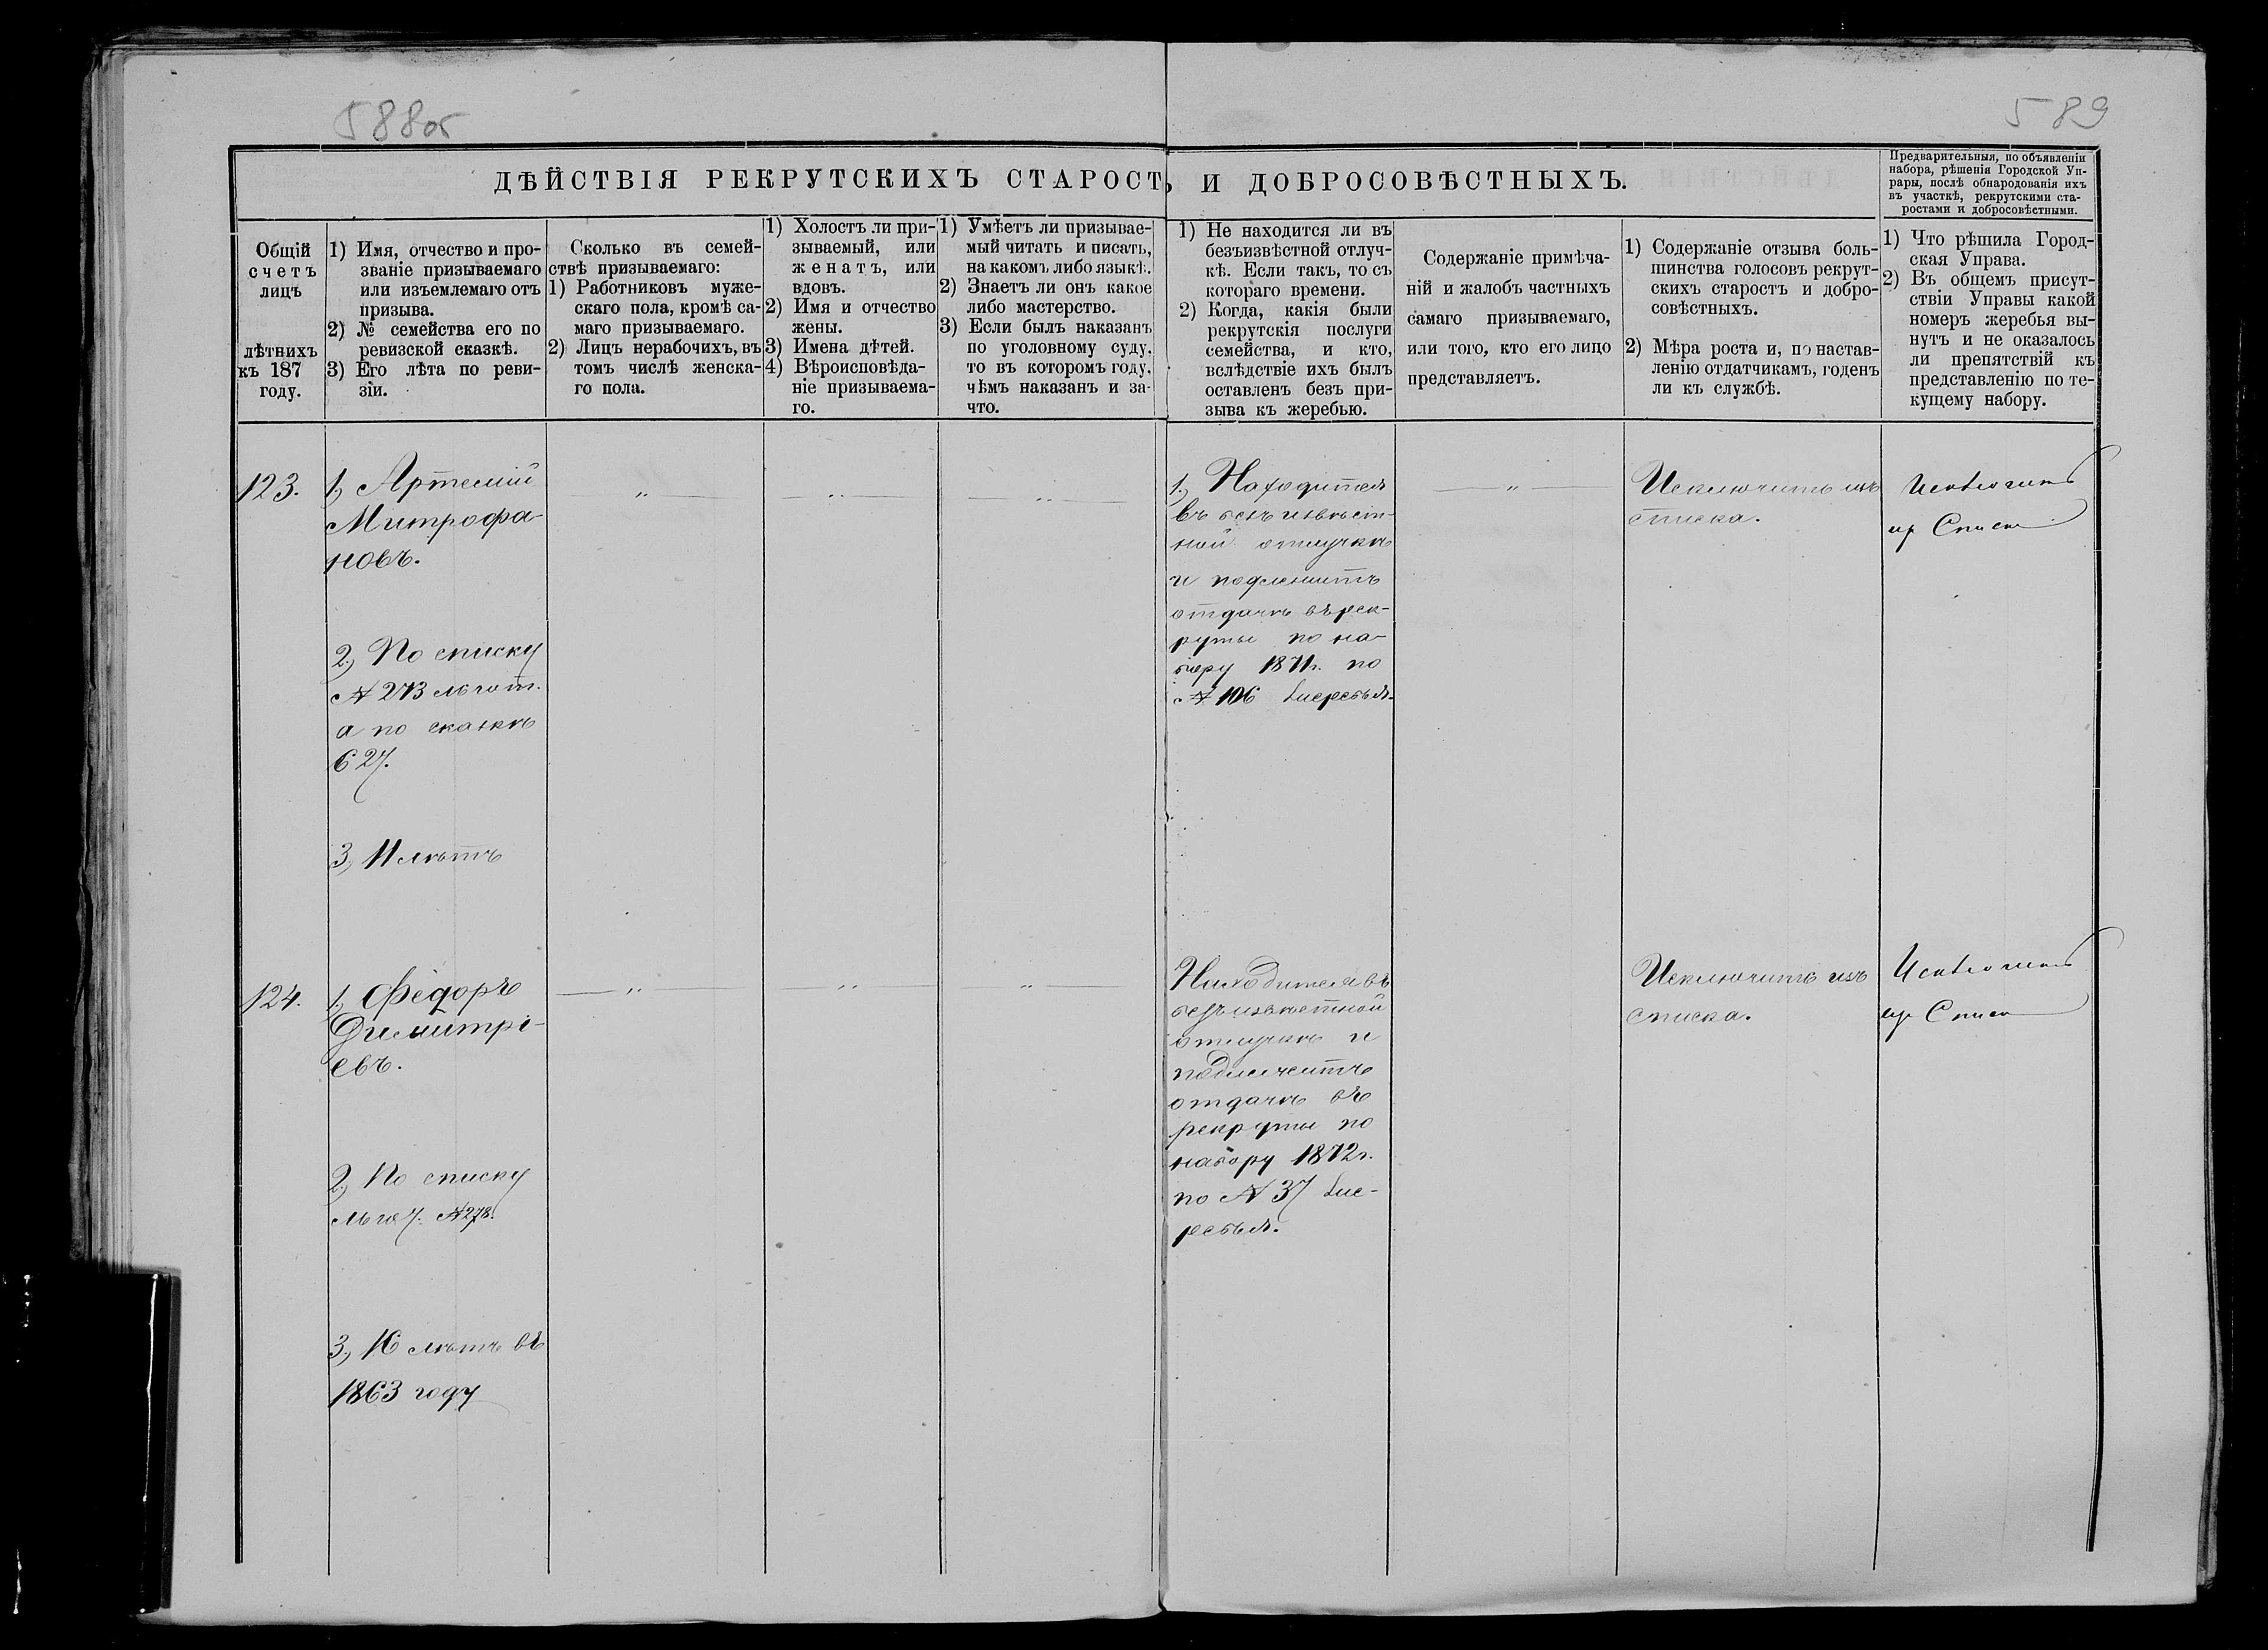 588об
589
ДѢЙСТВІЯ РЕКРУТСКИХЪ СТАРОСТЪ И ДОБРОСОВѢСТНЫХЪ.
Предварительныя, по объявленіи
набора, рѣшенія Городской Уп-
рары, послѣ обнародованія ихъ
въ участкѣ, рекрутскими ста-
ростами и добросовѣстными.
Общій
счетъ
лицъ
лѣтнихъ
къ 187
году.
1) Имя, отчество и про-
званіе призываемаго
или изъемлемаго отъ
призыва.
2) № семейства его по
ревизской сказкѣ.
3) Его лѣта по реви-
зіи.
Сколько въ семей-
ствѣ призываемаго:
1) Работниковъ муже-
скаго пола, кромѣ са-
маго призываемаго.
2) Лицъ нерабочихъ, въ
томъ числѣ женска-
го пола.
1) Холостъ ли при-
зываемый, или
женатъ, или
вдовъ.
2) Имя и отчество
жены.
3) Имена дѣтей.
4) Вѣроисповѣда-
ніе призываема-
го.
1) Умѣетъ ли призывае-
мый читать и писать,
на какомъ либо языкѣ.
2) Знаетъ ли онъ какое
либо мастерство.
3) Если былъ наказанъ
по уголовному суду,
то въ которомъ году,
чѣмъ наказанъ и за
что.
1) Не находится ли въ
безъизвѣстной отлуч-
кѣ. Если такъ, то съ
котораго времени.
2) Когда, какія были
рекрутскія послуги
семейства, и кто,
вслѣдствіе ихъ былъ
оставленъ безъ при-
зыва къ жеребью.
Содержаніе примѣча-
ній и жалобъ частныхъ
самаго призываемаго,
или того, кто его лицо
представляетъ.
1) Содержаніе отзыва боль-
шинства голосовъ рекрут-
скихъ старостъ и добро-
совѣстныхъ.
2) Мѣра роста и, по настав-
ленію отдатчикамъ, годенъ
ли къ службѣ.
1) Что рѣшила Город-
ская Управа.
2) Въ общемъ присут-
ствіи Управы какой
номеръ жеребья вы-
нутъ и не оказалось
ли препятствій къ
представленію по те-
кущему набору.
123.
1, Артемій
Митрофа-
новъ.
2, По списку
№ 273 льгот.
а по сказкѣ
627.
3, 11 лѣтъ
1, Находится
въ безъизвѣст-
ной отлучкѣ
и подлежитъ
отдачѣ въ рек-
руты по на-
бору 1871г. по
№ 106 жеребья.
Исключить изъ
списка.
Исключить
из Списка
124.
1, Ѳедоръ
Димитрі-
евъ.
2, По списку
льгот. № 278.
3, 16 лѣтъ въ
1863 году
Находится въ
безъизвѣстной
отлучкѣ и
подлежитъ
отдачѣ въ
рекруты по
набору 1872г.
по № 37 же-
ребья.
Исключить изъ
списка.
Исключить
из Списка